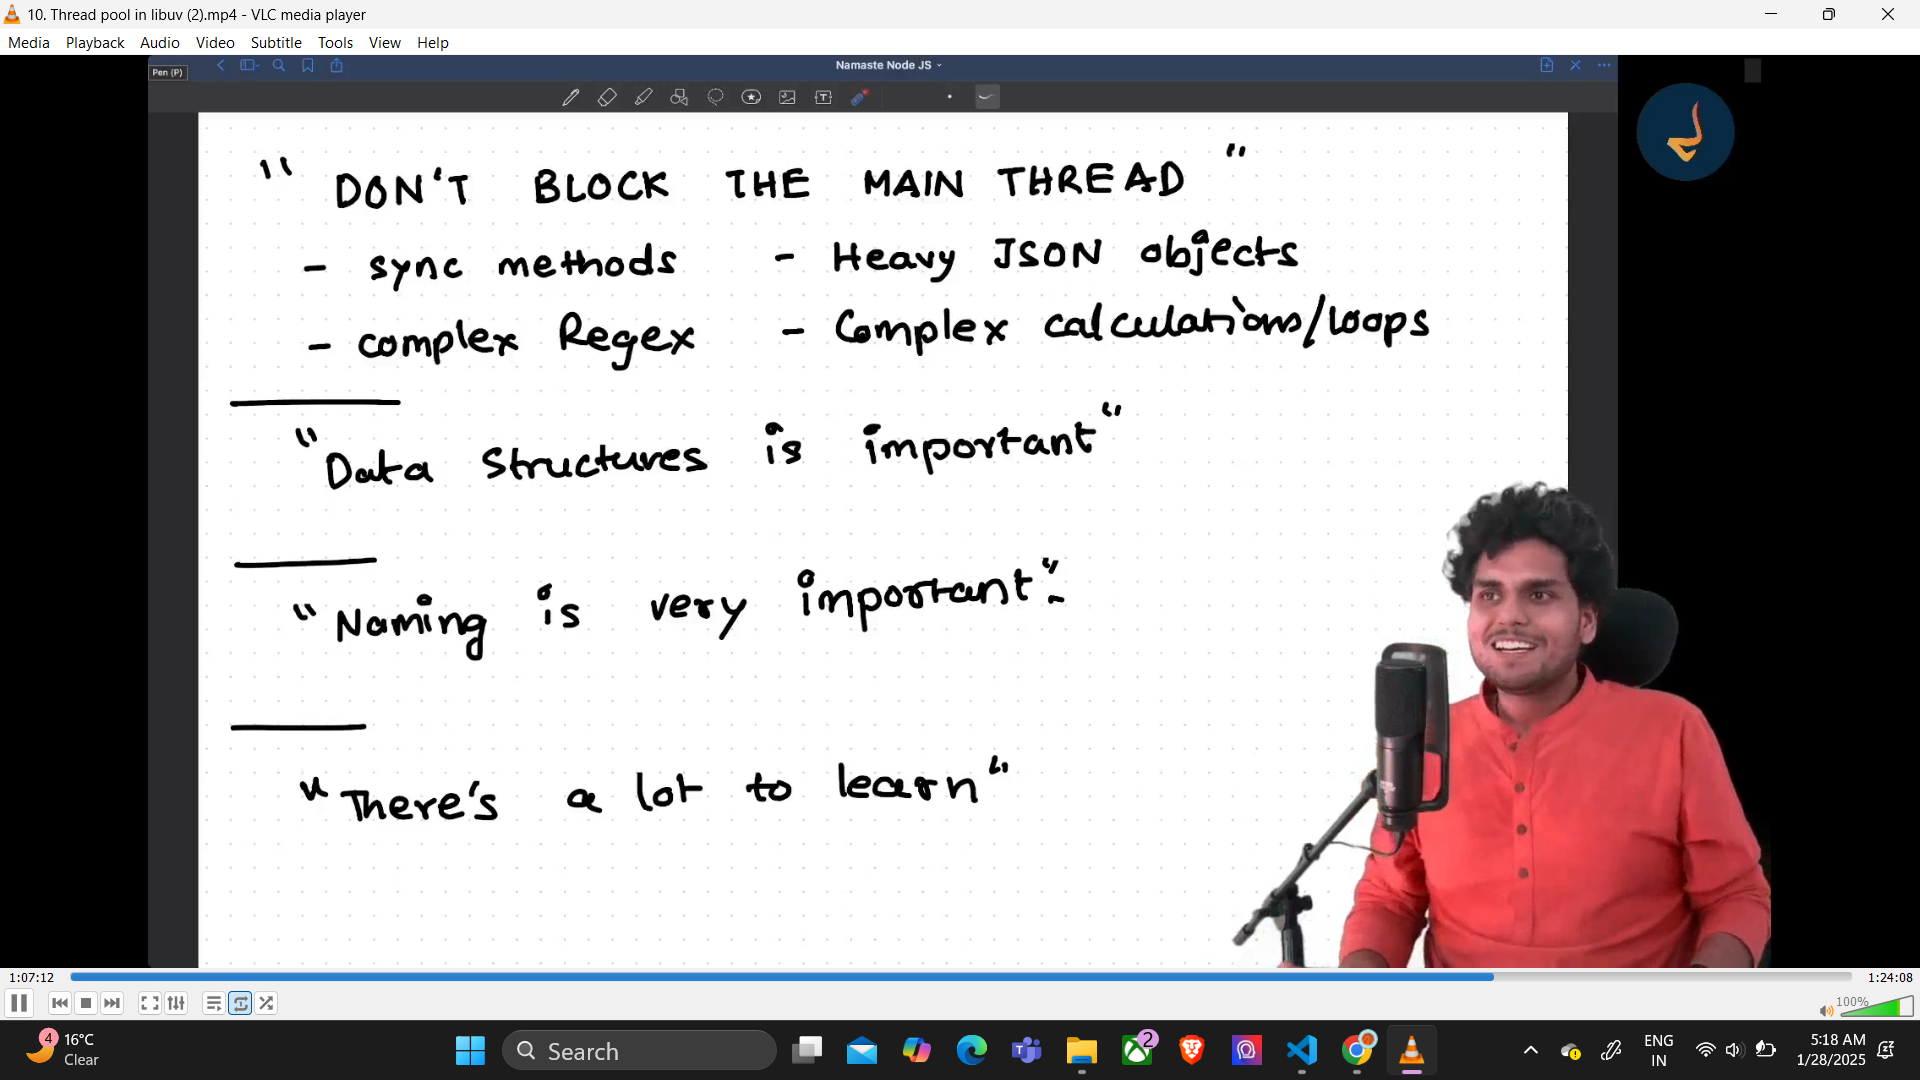 10. Thread pool in libuv (2).mp4 - VLC media player
Media Playback Audio Video Subtitle Tools View Help
Pen (P)
Namaste Node JS
" DON'T BLOCK THE MAIN THREAD "
- sync methods - Heavy JSON objects
- complex Regex - Complex calculations/loops
"Data Structures is important"
"Naming is very important":
"There's a lot to learn"
1:07:12 1:24:08
100%
4 16°C
Clear
Search
2
ENG
IN
5:18 AM
1/28/2025